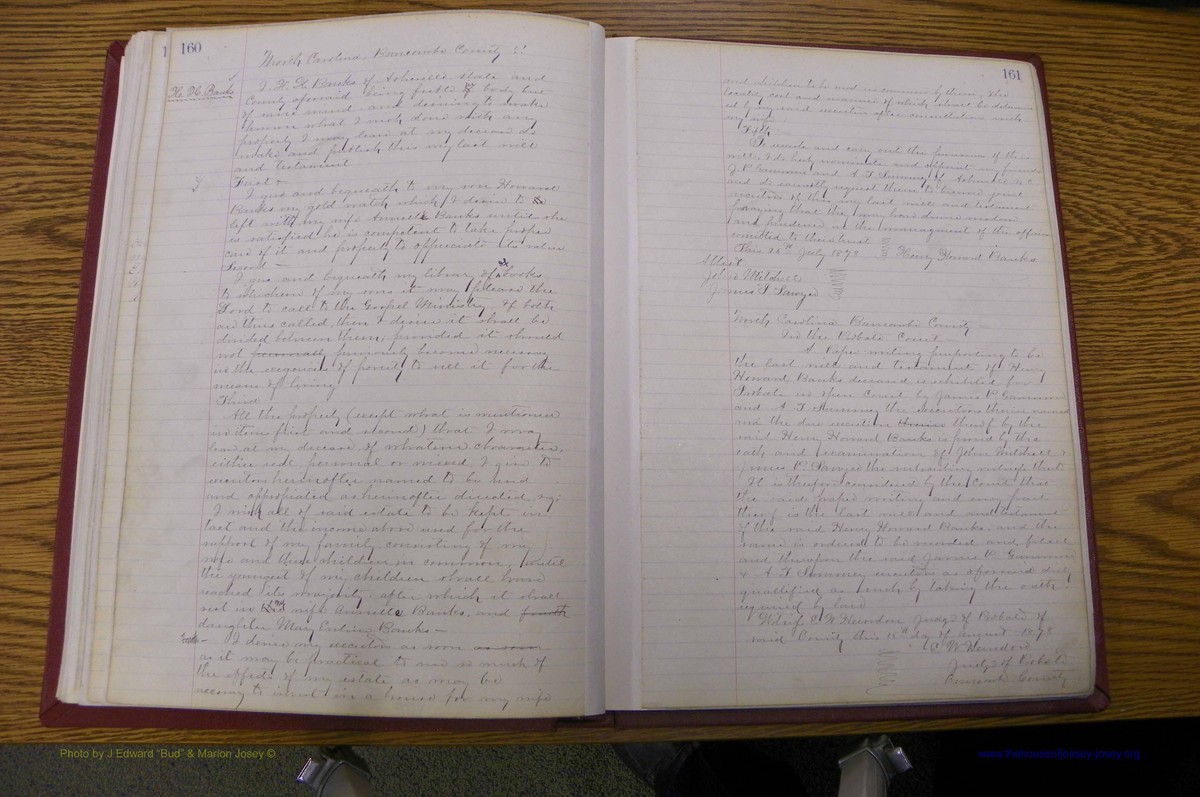 160
North Carolina Buncombe County
H. H. Banks
I H. H. Banks of Asheville state and
County aforesaid being feeble of body but
of sane mind and desiring to make
known what I wish done with any
property I may leave at my decease do
make and publish this my last will
and testament
First
I give and bequeath to my son Howard
Banks my gold watch which I desire to be
left with my wife Annielle Banks until she
is satisfied he is competent to take proper
care of it and properly to appreciate its value
Second
I give and bequeath my library of books
to whichever of my sons it may please the
Lord to call to the Gospel Ministry, if both
are thus called, then I desire it shall be
divided between them, provided it should
not previously become necessary
in the exigencies of poverty to sell it for the
means of living
Third
All the property (except what is mentioned
in items first and second) that I may
leave at my decease of whatever character,
either real personal or mixed I give to
executors hereinafter named to be used
and appropriated as hereinafter directed
I wish all of said estate to be kept in
tact and the income alone used for the
support of my family, consisting of my
wife and three children in common, until
the youngest of my children shall have
reached its majority after which it shall
rest in my wife Annielle Banks, and fourth
daughter May Banks
I desire my executors as soon as soon
as it may be practical to use so much of
the effects of my estate as may be
necessary to invest in a house for my wife
161
and children to be used in common by them, the
locality cost and manner of which shall be determin
ed by my said executors after consultation with
my wife
Fifth
To execute and carry out the provisions of this
will, I do hereby nominate and appoint my friends
J. P. Gammon and A. T. Summey of Asheville N. C.
and do earnestly request them to become joint
executors of this my last will and testament
praying that they may have divine wisdom
and guidance in the management of the affairs
committed to their trust
This 25th July 1878 Henry Howard Banks
Attest
John Mitchell
James P. Sawyer
North Carolina Buncombe County
In the Probate Court
A Paper writing purporting to be
the last will and testament of Henry
Howard Banks deceased is exhibited for
Probate in open Court by James P. Gammon
and A. T. Summey the executors therein named
and the due execution thereof by the
said Henry Howard Banks is proved by the
oath and examination of John Mitchell &
James P. Sawyer the subscribing witnesses thereto
It is therefore considered by the Court that
the said paper writing and every part
thereof is the last will and testament
of the said Henry Howard Banks, and the
same is ordered to be recorded and filed
and thereupon the said James P. Gammon
& A. T. Summey executors as aforesaid duly
qualified as such by taking the oath
required by law
Witness E. W. Herndon Judge of Probate of
said County this 15th day of August 1878
E. W. Herndon
Judge of Probate
Buncombe County
Photo by J Edward "Bud" & Marion Josey ©
www.thehouseofjossey-josey.org